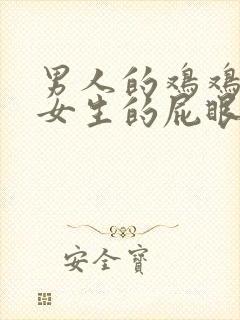 男人的鸡鸡
女生的屁眼
安全寶